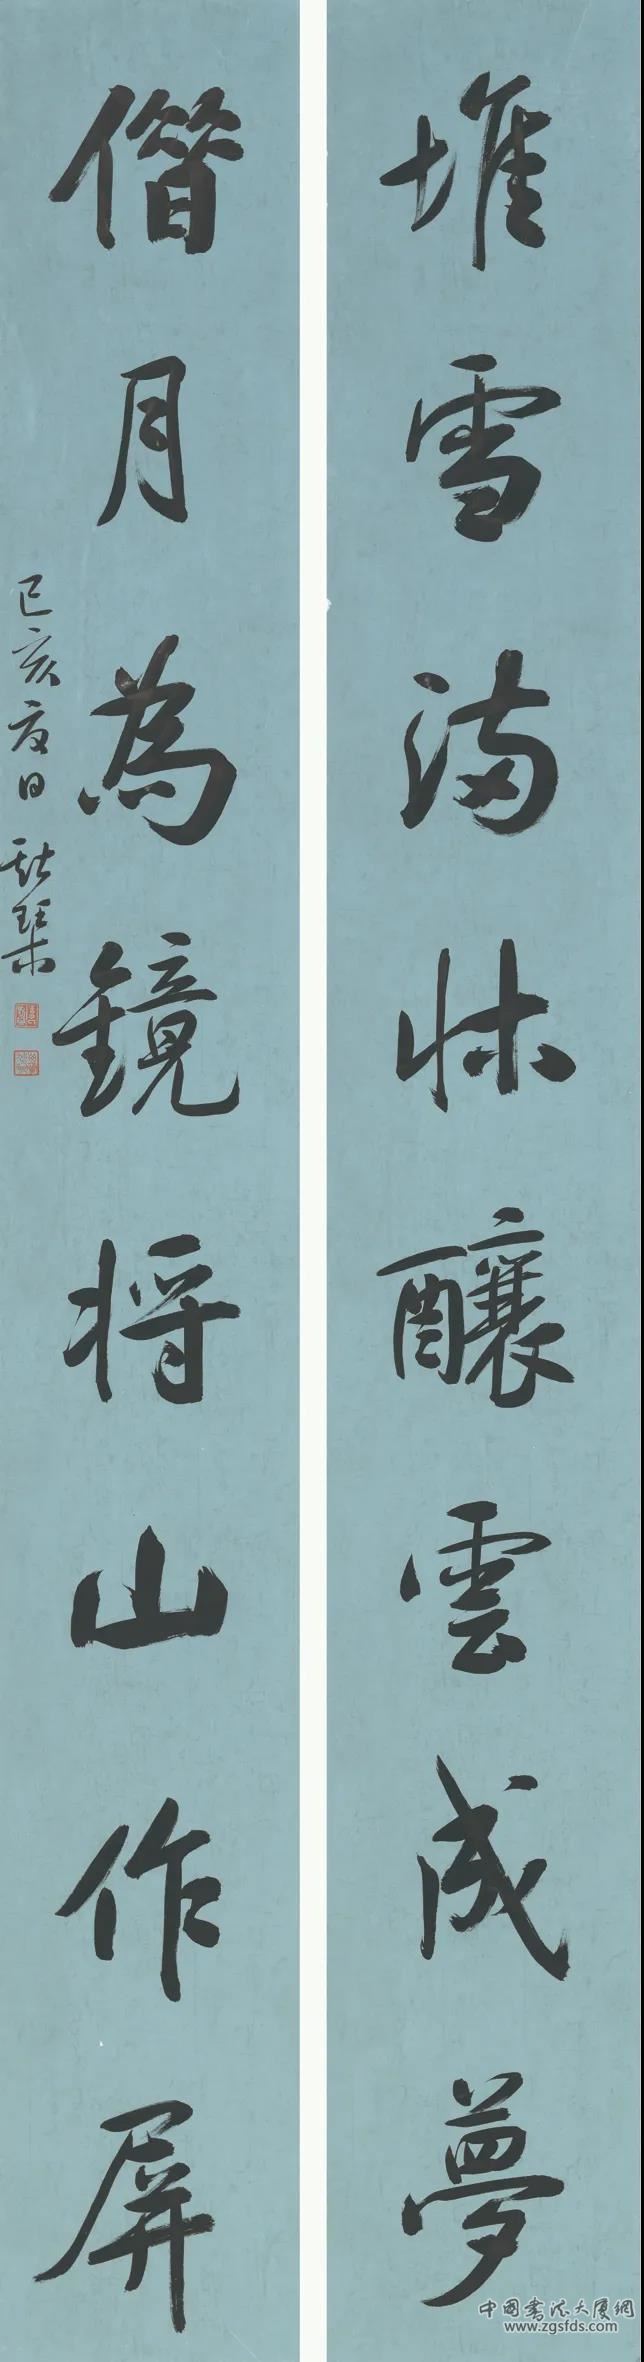 堆雪滿牀釀雲成夢
僭月為鏡将山作屏
己亥夏日
中國書法大廈網
www.zgsfds.com